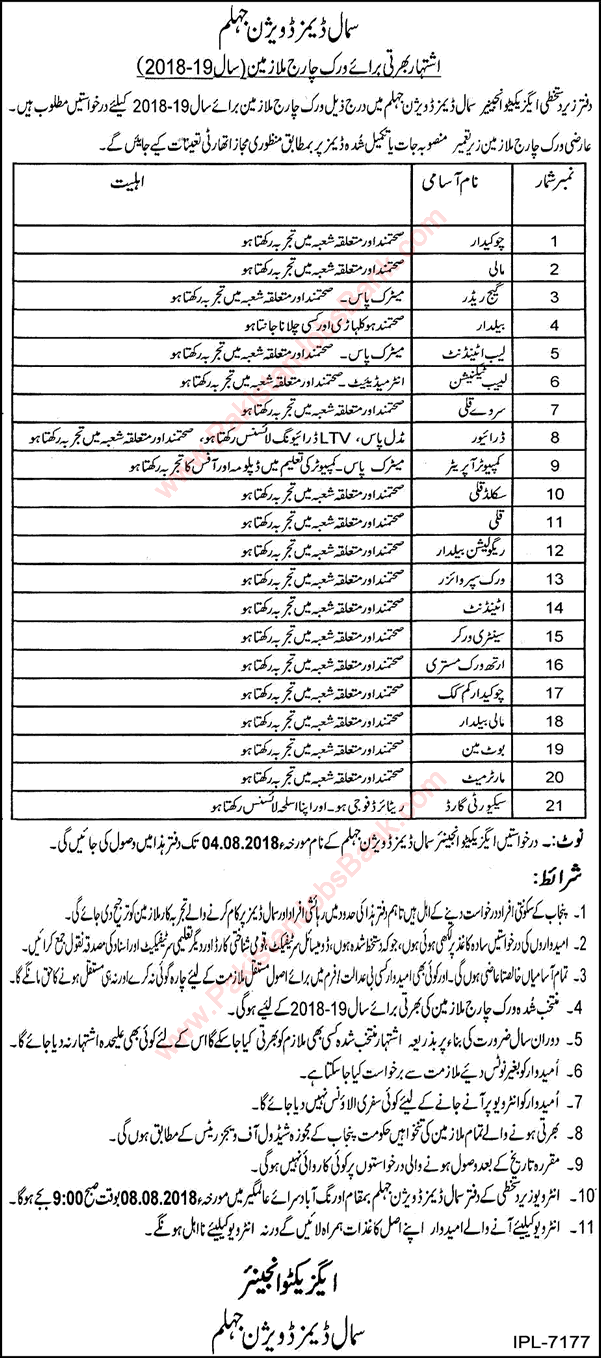 سمال ڈیمز ڈویژن جہلم
اشتہار بھرتی برائے ورک چارج ملازمین (سال 19-2018)
دفتر زیر دستخطی ایگزیکٹو انجینئر سمال ڈیمز ڈویژن جہلم میں درج ذیل ورک چارج ملازمین برائے سال 19-2018 کیلئے درخواستیں مطلوب ہیں۔
عارضی ورک چارج ملازمین زیر تعمیر منصوبہ جات یا تکمیل شدہ ڈیمز پر بمطابق منظوری مجاز اتھارٹی تعینات کیے جایئں گے۔
نمبر شمار نام آسامی اہلیت
1 چوکیدار صحتمند اور متعلقہ شعبہ میں تجربہ رکھتا ہو
2 مالی صحتمند اور متعلقہ شعبہ میں تجربہ رکھتا ہو
3 گیج ریڈر میٹرک پاس۔ صحتمند اور متعلقہ شعبہ میں تجربہ رکھتا ہو
4 بیلدار صحتمند ہو کلہاڑی اور کسی چلانا جانتا ہو
5 لیب اٹینڈنٹ میٹرک پاس۔ صحتمند اور متعلقہ شعبہ میں تجربہ رکھتا ہو
6 لیب ٹیکنیشن انٹرمیڈیٹ۔ صحتمند اور متعلقہ شعبہ میں تجربہ رکھتا ہو
7 سروے قلی صحتمند اور متعلقہ شعبہ میں تجربہ رکھتا ہو
8 ڈرائیور مڈل پاس، LTV ڈرائیونگ لائسنس رکھتا ہو، صحتمند اور متعلقہ شعبہ میں تجربہ رکھتا ہو
9 کمپیوٹر آپریٹر میٹرک پاس۔ کمپیوٹر کی تعلیم میں ڈپلومہ اور آفس کا تجربہ رکھتا ہو
10 سکلڈ قلی صحتمند اور متعلقہ شعبہ میں تجربہ رکھتا ہو
11 قلی صحتمند اور متعلقہ شعبہ میں تجربہ رکھتا ہو
12 ریگولیشن بیلدار صحتمند اور متعلقہ شعبہ میں تجربہ رکھتا ہو
13 ورک سپروائزر صحتمند اور متعلقہ شعبہ میں تجربہ رکھتا ہو
14 اٹینڈنٹ صحتمند اور متعلقہ شعبہ میں تجربہ رکھتا ہو
15 سینٹری ورکر صحتمند اور متعلقہ شعبہ میں تجربہ رکھتا ہو
16 ارتھ ورک مستری صحتمند اور متعلقہ شعبہ میں تجربہ رکھتا ہو
17 چوکیدار کم کک صحتمند اور متعلقہ شعبہ میں تجربہ رکھتا ہو
18 مالی بیلدار صحتمند اور متعلقہ شعبہ میں تجربہ رکھتا ہو
19 بوٹ مین صحتمند اور متعلقہ شعبہ میں تجربہ رکھتا ہو
20 مارٹر میٹ صحتمند اور متعلقہ شعبہ میں تجربہ رکھتا ہو
21 سیکیورٹی گارڈ ریٹائرڈ فوجی ہو۔ اور اپنا اسلحہ لائسنس رکھتا ہو
نوٹ:۔ درخواستیں ایگزیکٹو انجینئر سمال ڈیمز ڈویژن جہلم کے نام مورخہ 04.08.2018 تک دفتر ہذا میں وصول کی جائیں گی۔
شرائط:
1۔ پنجاب کے سکونتی افراد درخواست دینے کے اہل ہیں تاہم دفتر ہذا کی حدود میں رہائشی افراد اور سمال ڈیمز پر کام کرنے والے تجربہ کار ملازمین کو ترجیح دی جائے گی۔
2۔ امیدواروں کی درخواستیں سادہ کاغذ پر لکھی ہوئی ہوں، جو کہ دستخط شدہ ہوں، ڈومیسائل سرٹیفکیٹ، قومی شناختی کارڈ اور دیگر تعلیمی سرٹیفکیٹ اور اسناد کی مصدقہ نقول جمع کرائیں۔
3۔ تمام آسامیاں خالصتاً عارضی ہوں گی۔ اور کوئی بھی امیدوار کسی بھی عدالت/ فرم میں برائے اصول مستقل ملازمت کے لیئے چارہ کوئی نہ کرے اور نہ ہی مستقل ہونے کا حق مانگے گا۔
4۔ منتخب شدہ ورک چارج ملازمین کی بھرتی برائے سال 19-2018 کے لیئے ہوگی۔
5۔ دوران سال ضرورت کی بناء پر بذریعہ اشتہار منتخب شدہ کسی بھی ملازم کو بھرتی کیا جا سکے گا اس کے لئے کوئی بھی علیحدہ اشتہار نہ دیا جائے گا۔
6۔ اُمیدوار کو بغیر نوٹس دیئے ملازمت سے برخواست کیا جا سکتا ہے۔
7۔ اُمیدوار کو انٹرویو پر آنے جانے کے لیئے کوئی سفری الاؤنس نہیں دیا جائے گا۔
8۔ بھرتی ہونے والے تمام ملازمین کی تنخواہیں حکومت پنجاب کے مجوزہ شیڈول آف ویجز ریٹس کے مطابق ہوں گی۔
9۔ مقررہ تاریخ کے بعد وصول ہونے والی درخواستوں پر کوئی کاروائی نہیں ہوگی۔
10۔ انٹرویو زیر دستخطی کے دفتر سمال ڈیمز ڈویژن جہلم بمقام اورنگ آباد سرائے عالمگیر میں مورخہ 08.08.2018 بوقت صبح 9:00 بجے ہوگا۔
11۔ انٹرویو کیلیئے آنے والے امیدوار اپنے اصل کاغذات ہمراہ لائیں گے ورنہ انٹرویو کیلیئے نااہل ہونگے۔
ایگزیکٹو انجینئر
سمال ڈیمز ڈویژن جہلم
IPL-7177
www.PakistanJobsBank.com
www.PakistanJobsBank.com